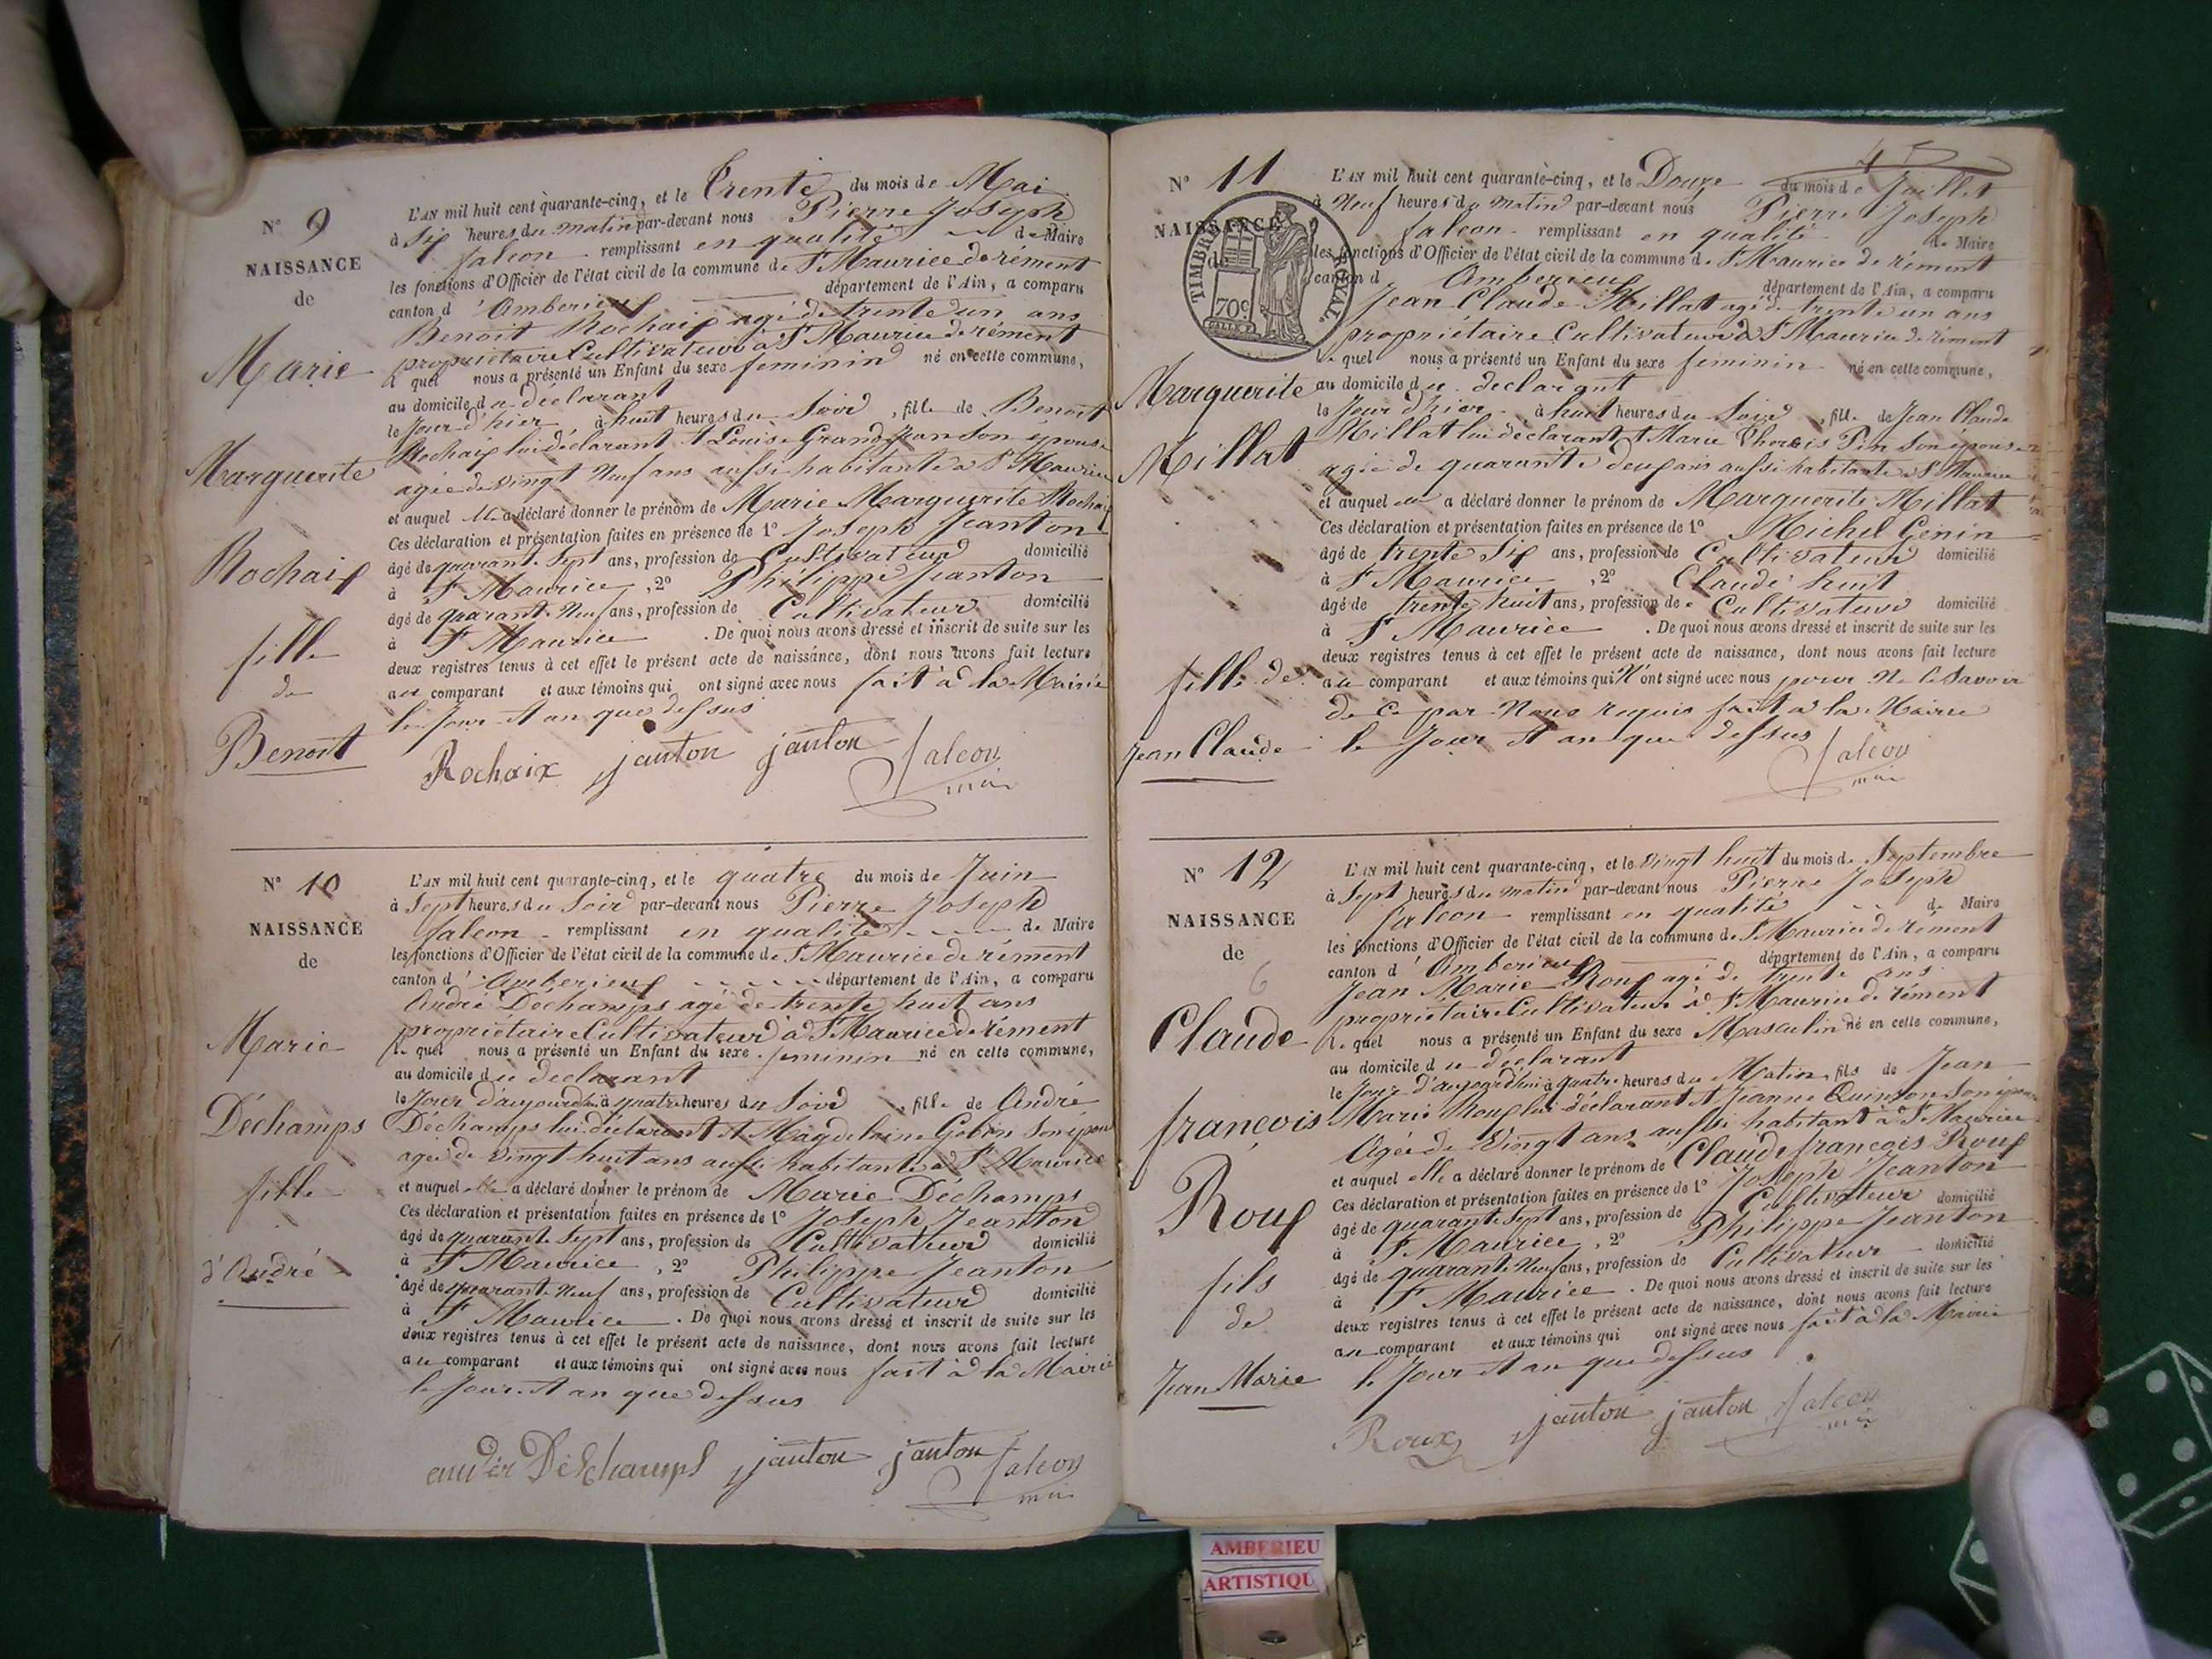 N° 9
NAISSANCE
de
Marie
Marguerite
Rochaix
fille
de
Benoit
L'AN mil huit cent quarante-cinq, et le Trente du mois de Mai
à Six heures du matin par-devant nous Pierre Joseph
falcon remplissant en qualité de Maire
les fonctions d'Officier de l'état civil de la commune de St Maurice de rément
canton d'Amberieux département de l'Ain, a comparu
Benoit Rochaix agé de trente un ans
propriétaire Cultivateur à St Maurice de rément
le quel nous a présenté un Enfant du sexe feminin né en cette commune,
au domicile du déclarant
le Jour d'hier à huit heures du Soir, fille de Benoit
Rochaix lui déclarant et Louise Grandjean Son épouse
agée de vingt Neuf ans aussi habitante à St Maurice
et auquel il a déclaré donner le prénom de Marie Marguerite Rochaix
Ces déclaration et présentation faites en présence de 1° Joseph Jeanton
âgé de quarante Sept ans, profession de Cultivateur domicilié
à St Maurice, 2° Philippe Jeanton
âgé de quarante Neuf ans, profession de Cultivateur domicilié
à St Maurice. De quoi nous avons dressé et inscrit de suite sur les
deux registres tenus à cet effet le présent acte de naissance, dont nous avons fait lecture
au comparant et aux témoins qui ont signé avec nous fait à la Mairie
le Jour et an que dessus
Rochaix janton janton falcon
N° 10
NAISSANCE
de
Marie
Déchamps
fille
d'André
L'AN mil huit cent quarante-cinq, et le quatre du mois de Juin
à Sept heures du Soir par-devant nous Pierre Joseph
falcon remplissant en qualité de Maire
les fonctions d'Officier de l'état civil de la commune de St Maurice de rément
canton d'Amberieux département de l'Ain, a comparu
André Déchamps agé de trente huit ans
propriétaire Cultivateur à St Maurice de rément
le quel nous a présenté un Enfant du sexe feminin né en cette commune,
au domicile du declarant
le Jour d'aujourdhui à quatre heures du Soir, fille de André
Déchamps lui déclarant et Magdelaine Gobin Son épouse
agée de vingt huit ans aussi habitante à St Maurice
et auquel elle a déclaré donner le prénom de Marie Déchamps
Ces déclaration et présentation faites en présence de 1° Joseph Jeanton
âgé de quarante Sept ans, profession de Cultivateur domicilié
à St Maurice, 2° Philippe Jeanton
âgé de quarante Neuf ans, profession de Cultivateur domicilié
à St Maurice. De quoi nous avons dressé et inscrit de suite sur les
deux registres tenus à cet effet le présent acte de naissance, dont nous avons fait lecture
au comparant et aux témoins qui ont signé avec nous fait à la Mairie
le Jour et an que dessus
janton janton falcon
45
N° 11
NAISSANCE
de
TIMBRE ROYAL
70c
Marguerite
Millat
fille de
Jean Claude
L'AN mil huit cent quarante-cinq, et le Douze du mois de Juillet
à Neuf heures du Matin par-devant nous Pierre Joseph
falcon remplissant en qualité de Maire
les fonctions d'Officier de l'état civil de la commune de St Maurice de rément
canton d Amberieux département de l'Ain, a comparu
Jean Claude Millat agé de trente un ans
propriétaire Cultivateur à St Maurice de rément
le quel nous a présenté un Enfant du sexe feminin né en cette commune,
au domicile du declarant
le Jour d'hier à huit heures du Soir, fille de Jean Claude
Millat lui déclarant et Marie Pin Son épouse
agée de quarante deux ans aussi habitante à St Maurice
et auquel a déclaré donner le prénom de Marguerite Millat
Ces déclaration et présentation faites en présence de 1° Michel Genin
âgé de trente Six ans, profession de Cultivateur domicilié
à St Maurice, 2° Claude huit
âgé de trente huit ans, profession de Cultivateur domicilié
à St Maurice. De quoi nous avons dressé et inscrit de suite sur les
deux registres tenus à cet effet le présent acte de naissance, dont nous avons fait lecture
au comparant et aux témoins qui N'ont signé avec nous pour Ne le Savoir
de ce par Nous requis fait à la Mairie
le Jour et an que dessus falcon
N° 12
NAISSANCE
de
6
Claude
francois
Roux
fils
de
Jean Marie
L'AN mil huit cent quarante-cinq, et le vingt huit du mois de Septembre
à Sept heures du matin par-devant nous Pierre Joseph
falcon remplissant en qualité de Maire
les fonctions d'Officier de l'état civil de la commune de St Maurice de rément
canton d'Amberieux département de l'Ain, a comparu
Jean Marie Roux agé de trente ans
propriétaire Cultivateur à St Maurice de rément
le quel nous a présenté un Enfant du sexe Masculin né en cette commune,
au domicile du déclarant
le Jour d'aujourdhui à quatre heures du Matin, fils de Jean
Marie Roux lui déclarant et Jeanne Quinson Son épouse
Agée de Vingt ans aussi habitant à St Maurice
et auquel elle a déclaré donner le prénom de Claude francois Roux
Ces déclaration et présentation faites en présence de 1° Joseph Jeanton
âgé de quarante Sept ans, profession de Cultivateur domicilié
à St Maurice, 2° Philippe Jeanton
âgé de quarante Neuf ans, profession de Cultivateur domicilié
à St Maurice. De quoi nous avons dressé et inscrit de suite sur les
deux registres tenus à cet effet le présent acte de naissance, dont nous avons fait lecture
au comparant et aux témoins qui ont signé avec nous fait à la Mairie
le Jour et an que dessus
Roux janton janton falcon
AMBERIEU
ARTISTIQU